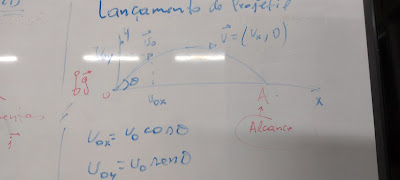 Lançamento de Projétil
y
v⃗₀
v⃗ = (vₓ, 0)
g⃗
θ
0
v₀ₓ
A
x⃗
Alcance
v₀ₓ = v₀ cosθ
v₀y = v₀ senθ